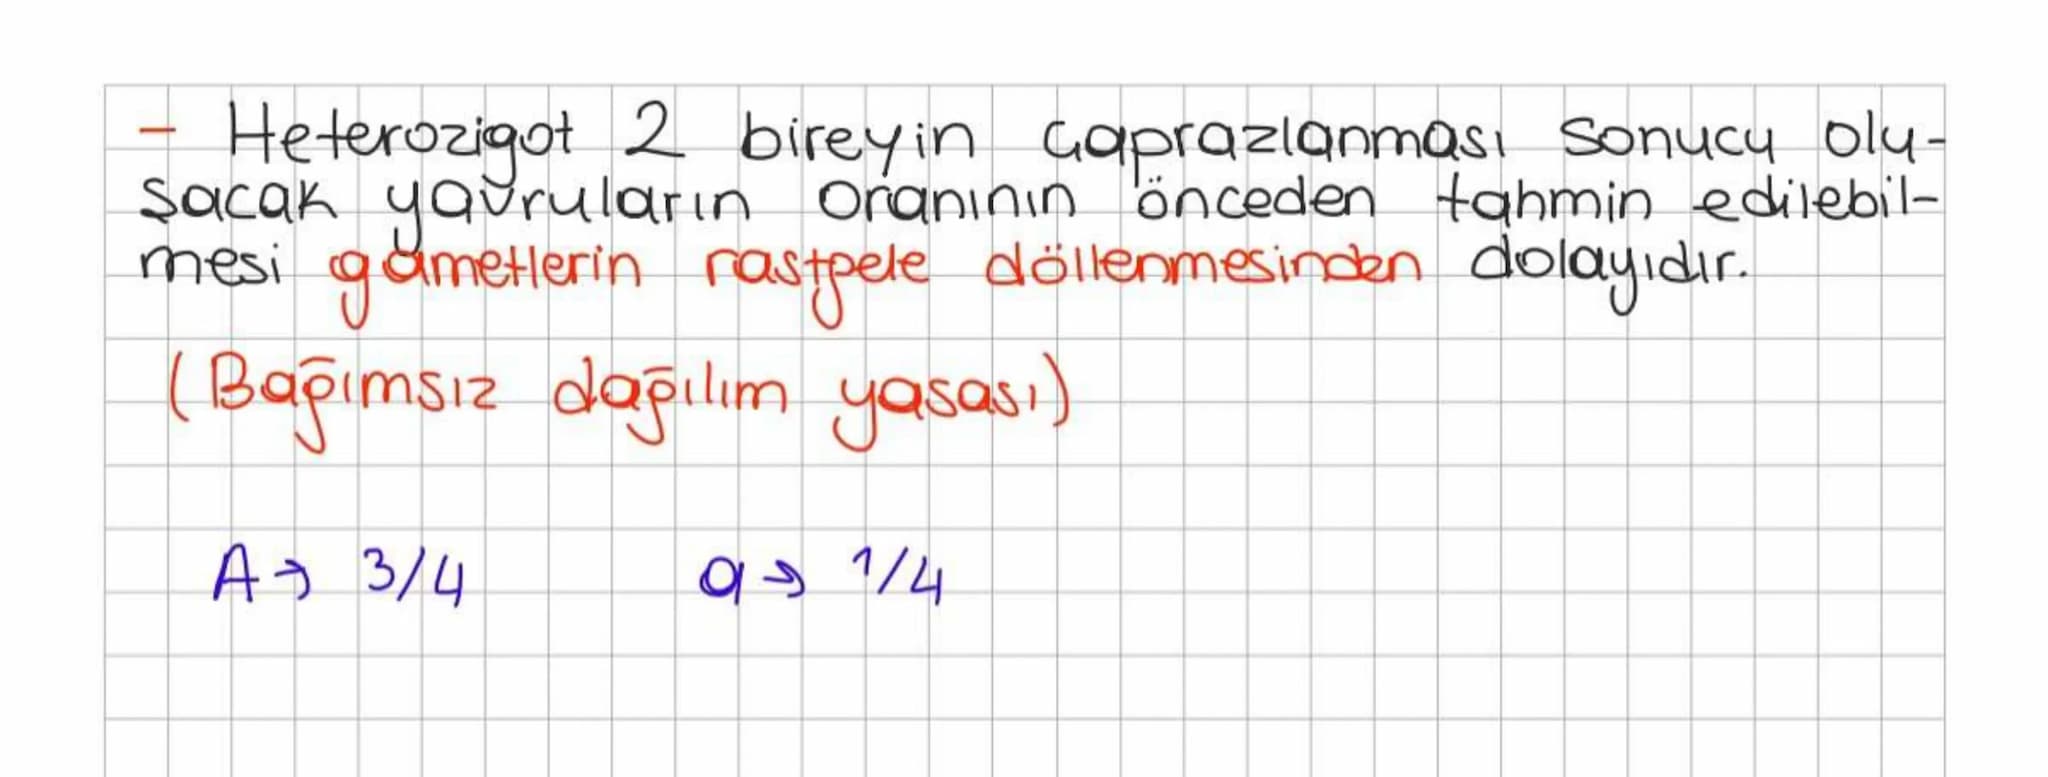 - Heterozigot 2 bireyin çaprazlanması sonucu olu-
şacak yavruların oranının önceden tahmin edilebil-
mesi gametlerin rastgele döllenmesinden dolayıdır.
(Bağımsız dağılım yasası)
A → 3/4 a → 1/4